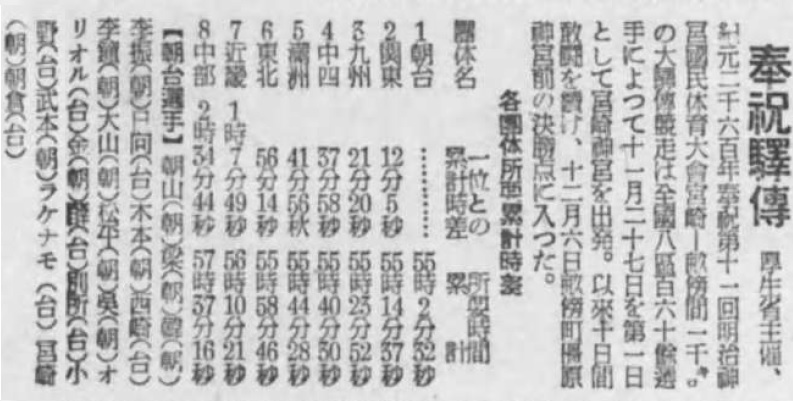 奉祝驛傳
厚生省主催、
紀元二千六百年奉祝第十一回明治神
宮國民体育大會宮崎—畝傍間一千キロ
の大驛傳競走は全國八區百六十餘選
手によつて十一月二十七日を第一日
として宮崎神宮を出発。以來十日間
敢闘を續け、十二月六日畝傍町橿原
神宮前の決勝点に入つた。
各團体所要累計時差
團体名 一位との累計時差 所要時間累計
1朝台 ………… 55時2分32秒
2関東 12分5秒 55時14分37秒
3九州 21分20秒 55時23分52秒
4中四 37分58秒 55時40分30秒
5満洲 41分56秋 55時44分28秒
6東北 56分14秒 55時58分46秒
7近畿 1時7分49秒 56時10分21秒
8中部 2時34分44秒 57時37分16秒
【朝台選手】朝山(朝)梁(朝)韓(朝)
李振(朝)日向(台)木本(朝)西崎(台)
李鎭(朝)大山(朝)松平(朝)呉(朝)オ
リオル(台)金(朝)薛(台)別所(台)小
野(台)武本(朝)ラケナモ(台)宮崎
(朝)朝倉(台)